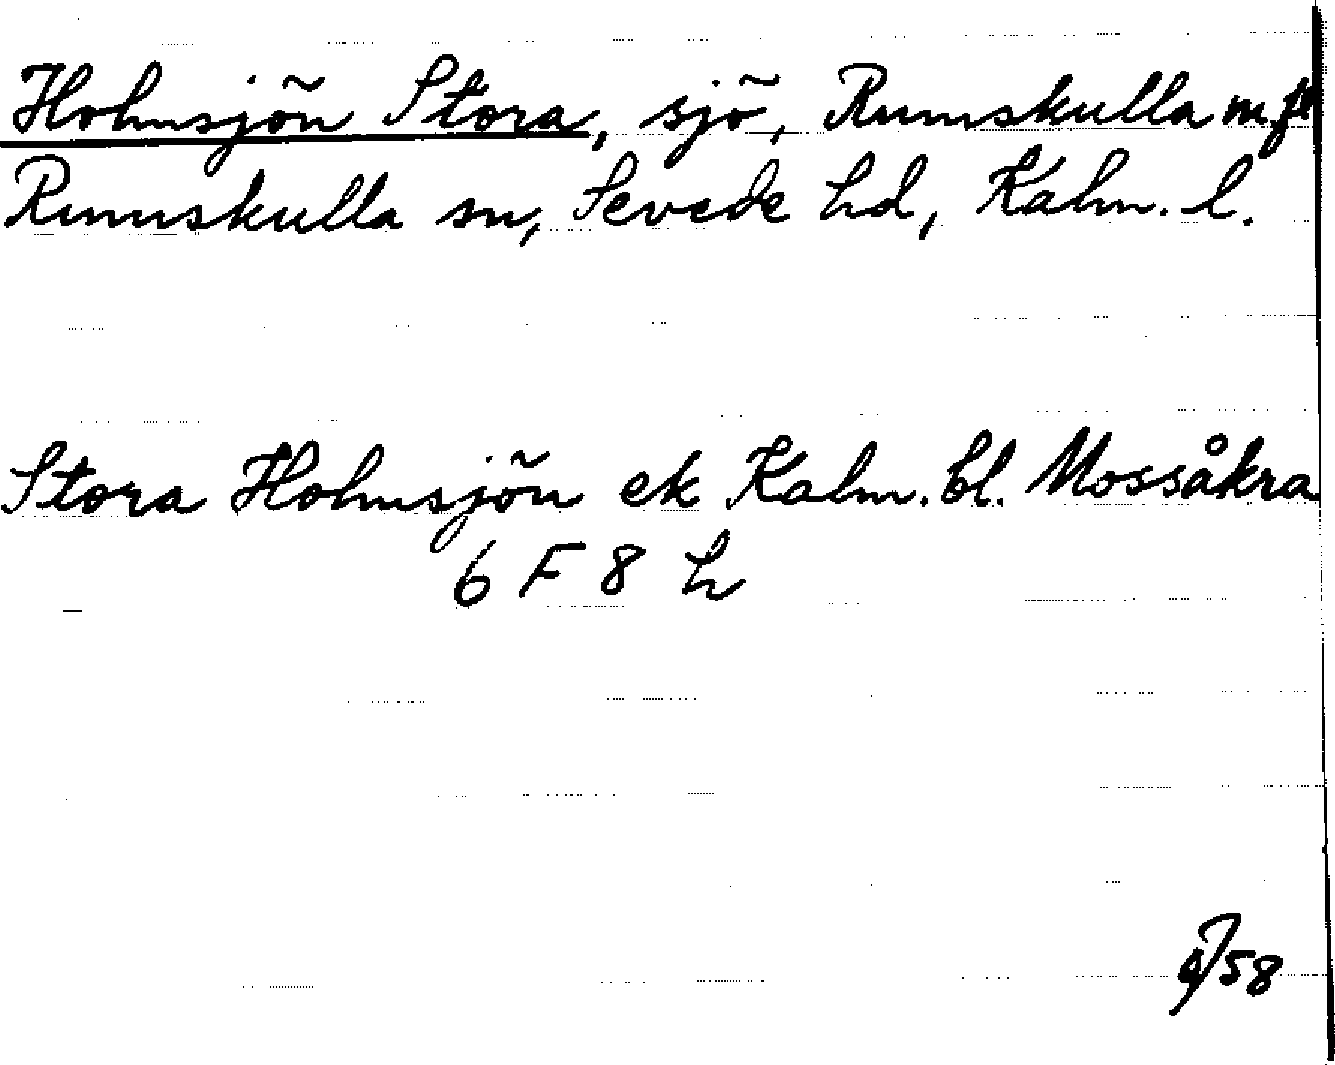 Holmsjön Stora, sjö, Rumskulla m.fl
Rumskulla sn, Sevede hd, Kalm. l.
Stora Holmsjön ek Kalm. bl. Mossåkra
6 F 8 h
58